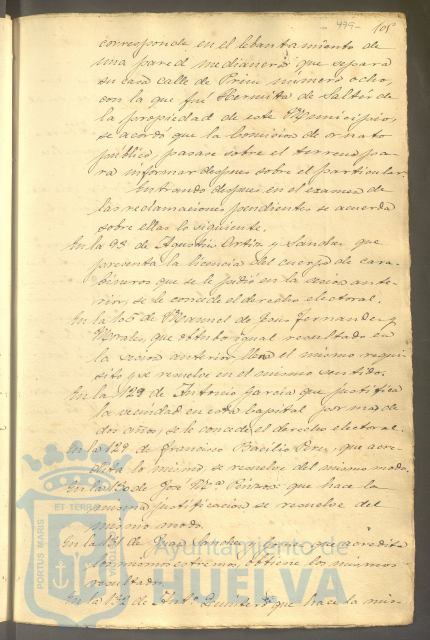 479- 105
corresponde en el lebantamiento de
una pared medianera que separa
su casa calle de Prim número ocho,
con la que fué Hermita de Saltés de
la propiedad de este Municipio,
se acordó que la Comision de ornato
público, pasase sobre el terreno pa-
ra informar despues sobre el particular.
Entrando despues en el examen de
las reclamaciones pendientes se acuerda
sobre ellas lo siguiente.
En la 98 de Agustin Ortiz y Sanchez que
presenta la licencia del cuerpo de cara-
bineros que se le pidió en la sesion ante-
rior, se le concede el derecho electoral.
En la 105 de Manuel de Jesus Fernandez y
Morales, que obtubo igual resultado en
la sesion anterior, llena el mismo requi-
sito y se resuelve en el mismo sentido.
En la 129 de Antonio Garcia que justifica
la vecindad en esta Capital por mas de
dos años, se le concede el derecho electoral.
En la 129 de Francisco Basilio Perez, que acre-
dita lo mismo se resuelve del mismo modo.
En la 130 de José Mª que hace la
misma justificacion se resuelve del
mismo modo.
En la 131 de Juan Sanchez que acredita
los mismos estremos, obtiene los mismos
resultados.
En la 132 de Antº Quintero que hace la mis-
PORTUS MARIS ET TERRÆ
Ayuntamiento de
HUELVA